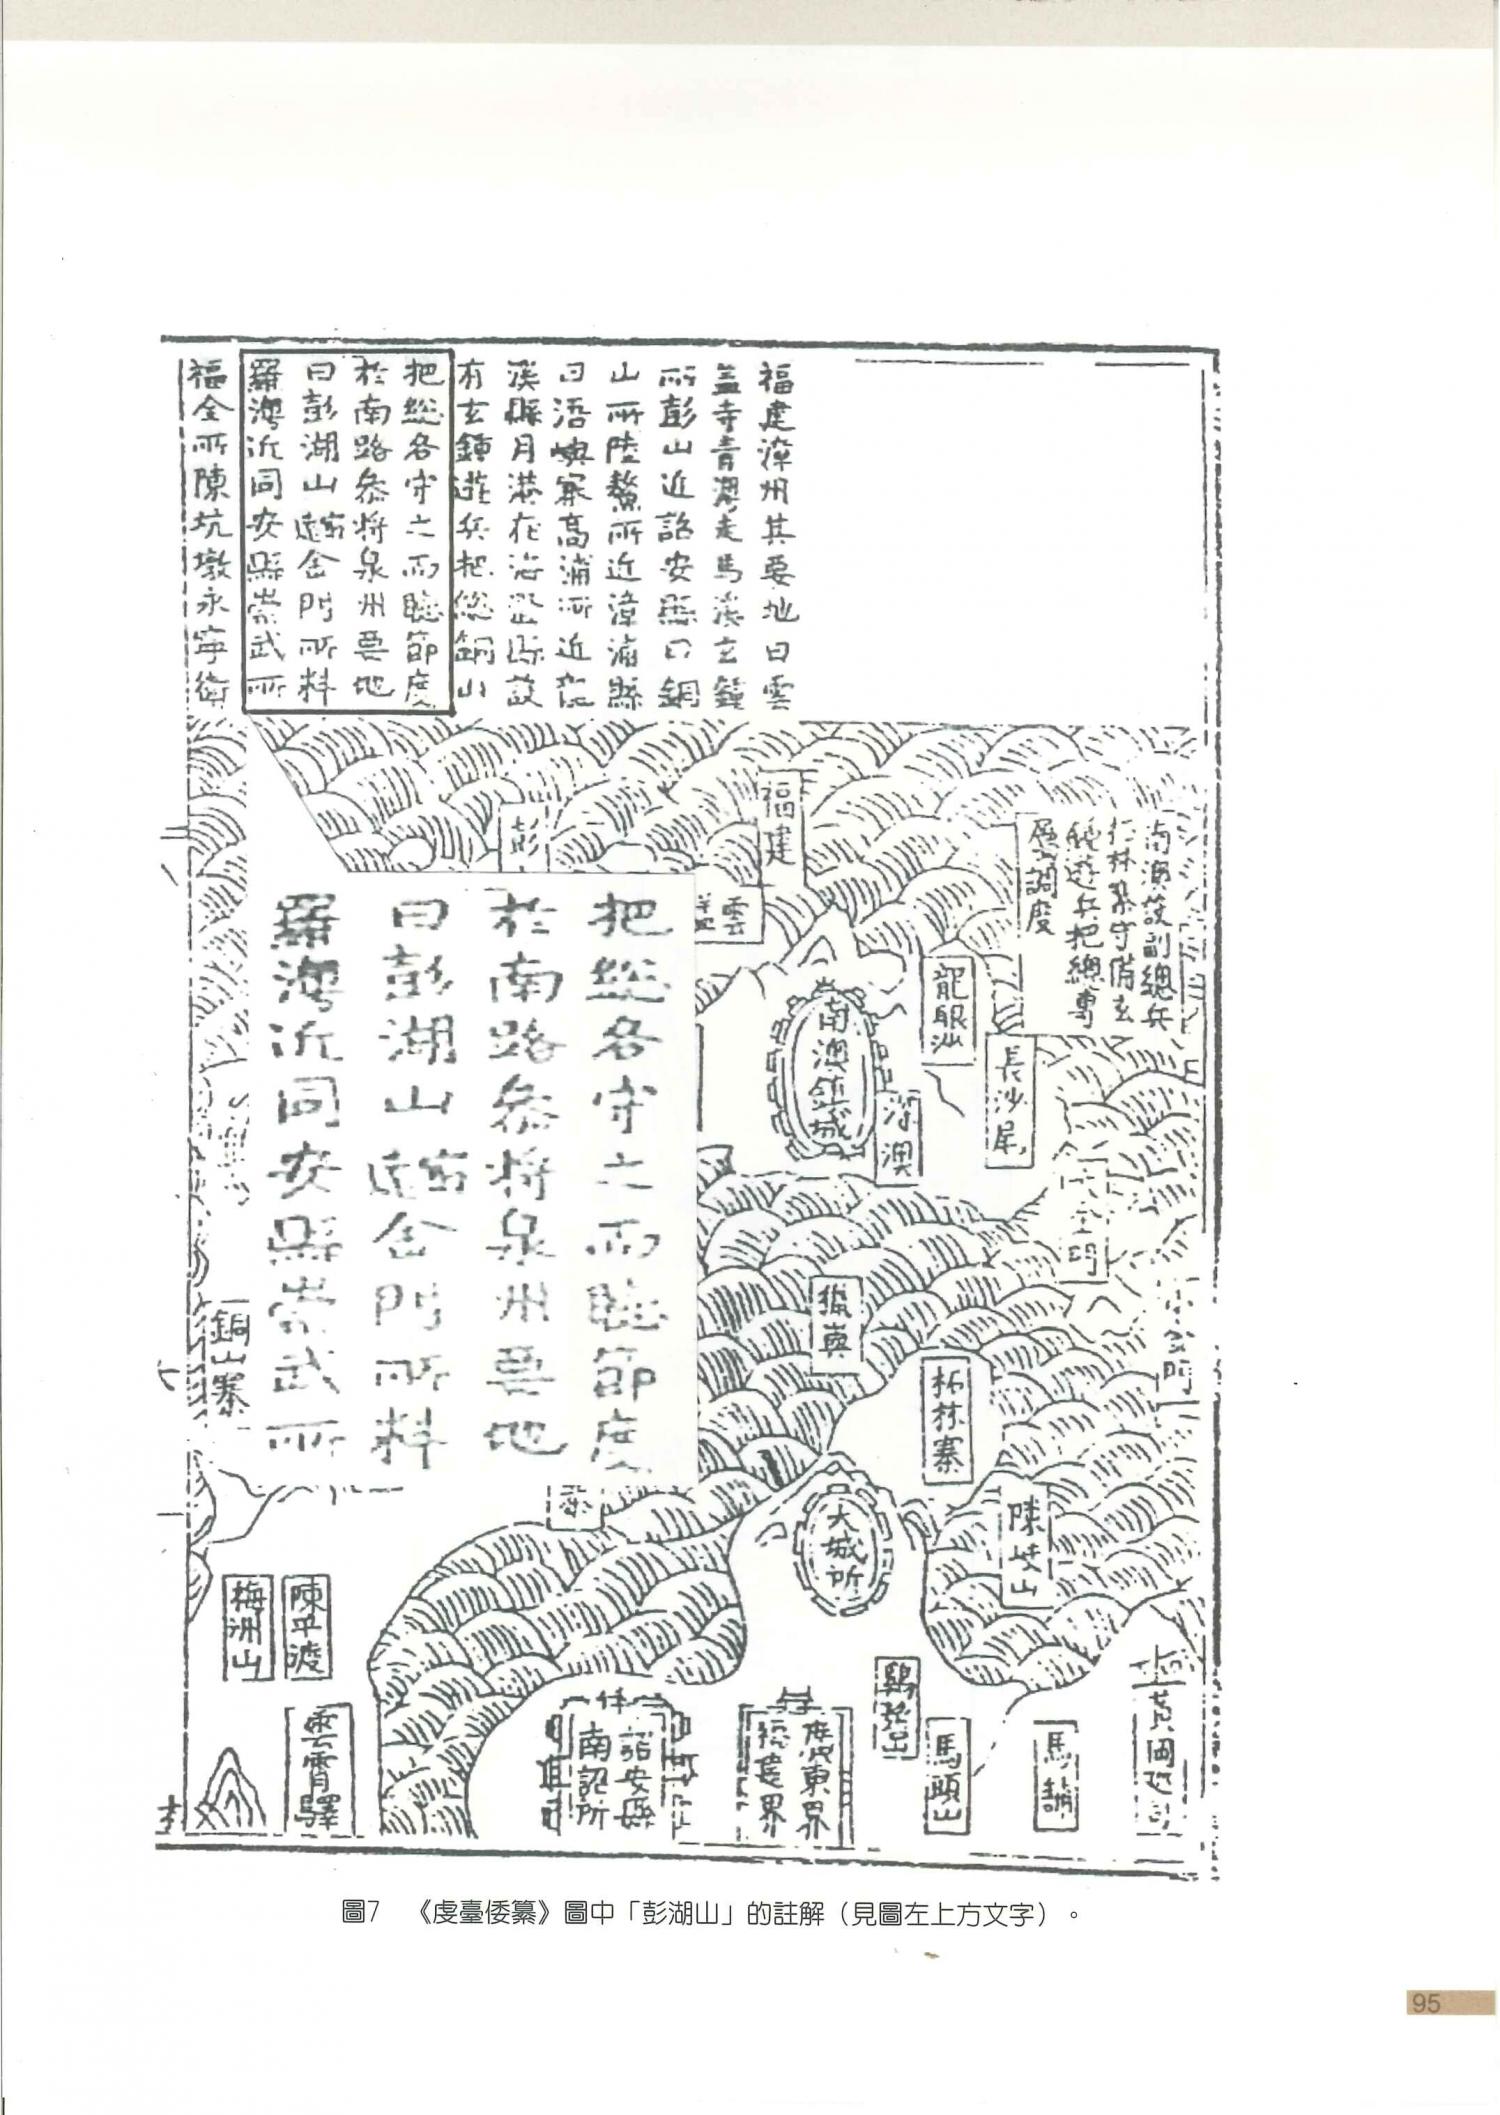 福建漳州其要地曰雲
蓋寺青澳走馬溪玄鐘
所彭山近詔安縣曰銅
山所陸鰲所近漳浦縣
曰浯嶼寨高浦所近龍
溪縣月港在海澄縣設
有玄鍾遊兵把總銅山
把總各守之而聽節度
於南路叅將泉州要地
曰彭湖山遶金門所料
羅海近同安縣崇武所
福全所陳坑墩永寧衛
南澳設副總兵
柘林寨守備玄
鐘遊兵把總專
屬調度
福建
彭
雲
蓋
龍眼汕
南澳鎮城
長沙尾
深澳
把總各守之而聽節度
於南路叅將泉州要地
曰彭湖山遶金門所料
羅海近同安縣崇武所
銅山寨
獵嶼
柘林寨
大城所
陳岐山
梅洲山
陳平渡
雲霄驛
詔安縣
南詔所
廣東界
福建界
馬頭山
馬舖
上黃岡巡司
圖7 《虔臺倭纂》圖中「彭湖山」的註解（見圖左上方文字）。
95